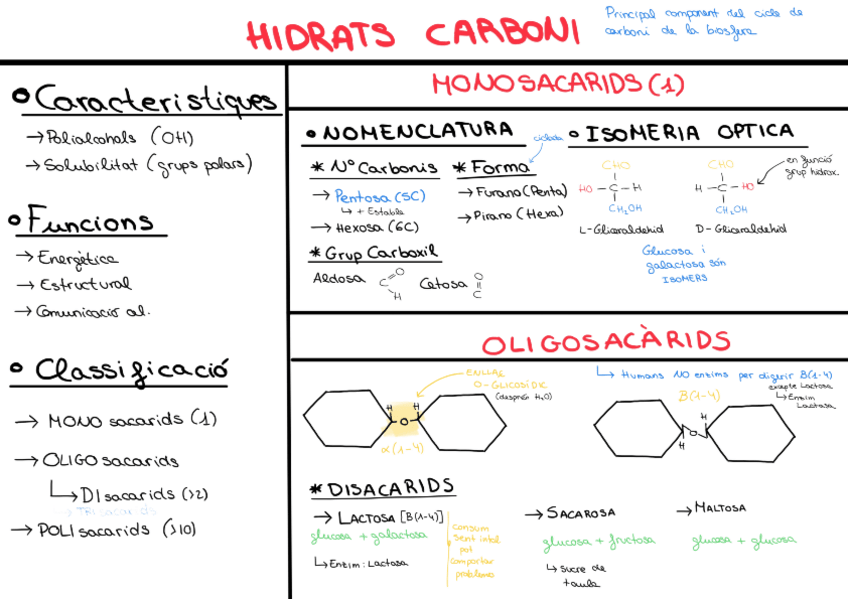 HIDRATS CARBONI
Principal component del cicle de
carboni de la biosfera
Caracteristiques
→ Polialcohols (OH)
→ Solubilitat (grups polars)
Funcions
→ Energètica
→ Estructural
→ Comunicació al.
Classificació
→ MONO sacarids (1)
→ OLIGO sacarids
DI sacarids (>2)
→ TRI sacarids
→ POLI sacarids (>10)
MONOSACARIDS (1)
NOMENCLATURA
* Nº Carbonis
→ Pentosa (5C)
↳ + Estable
→ Hexosa (6C)
* Grup Carboxil
Aldosa C O H
Cetosa O C
ciclada
* Forma
→ Furano (Penta)
→ Pirano (Hexa)
ISOMERIA OPTICA
CHO
HO - C - H
CH₂OH
L-Gliceraldehid
CHO
H - C - HO
CH₂OH
D-Gliceraldehid
en funció
grup hidrox.
Glucosa i
galactosa són
ISOMERS
OLIGOSACÀRIDS
ENLLAÇ
O-GLICOSÍDIC
(desprèn H₂O)
H O H
α(1-4)
↳ Humans NO enzims per digerir B(1-4)
excepte Lactosa
↳ Enzim
Lactasa
B(1-4)
H
O
H
* DISACARIDS
→ LACTOSA [B(1-4)]
glucosa + galactosa
↳ Enzim: Lactasa
consum
sent intol
pot
comportar
problema
→ SACAROSA
glucosa + fructosa
↳ sucre de
taula
→ MALTOSA
glucosa + glucosa